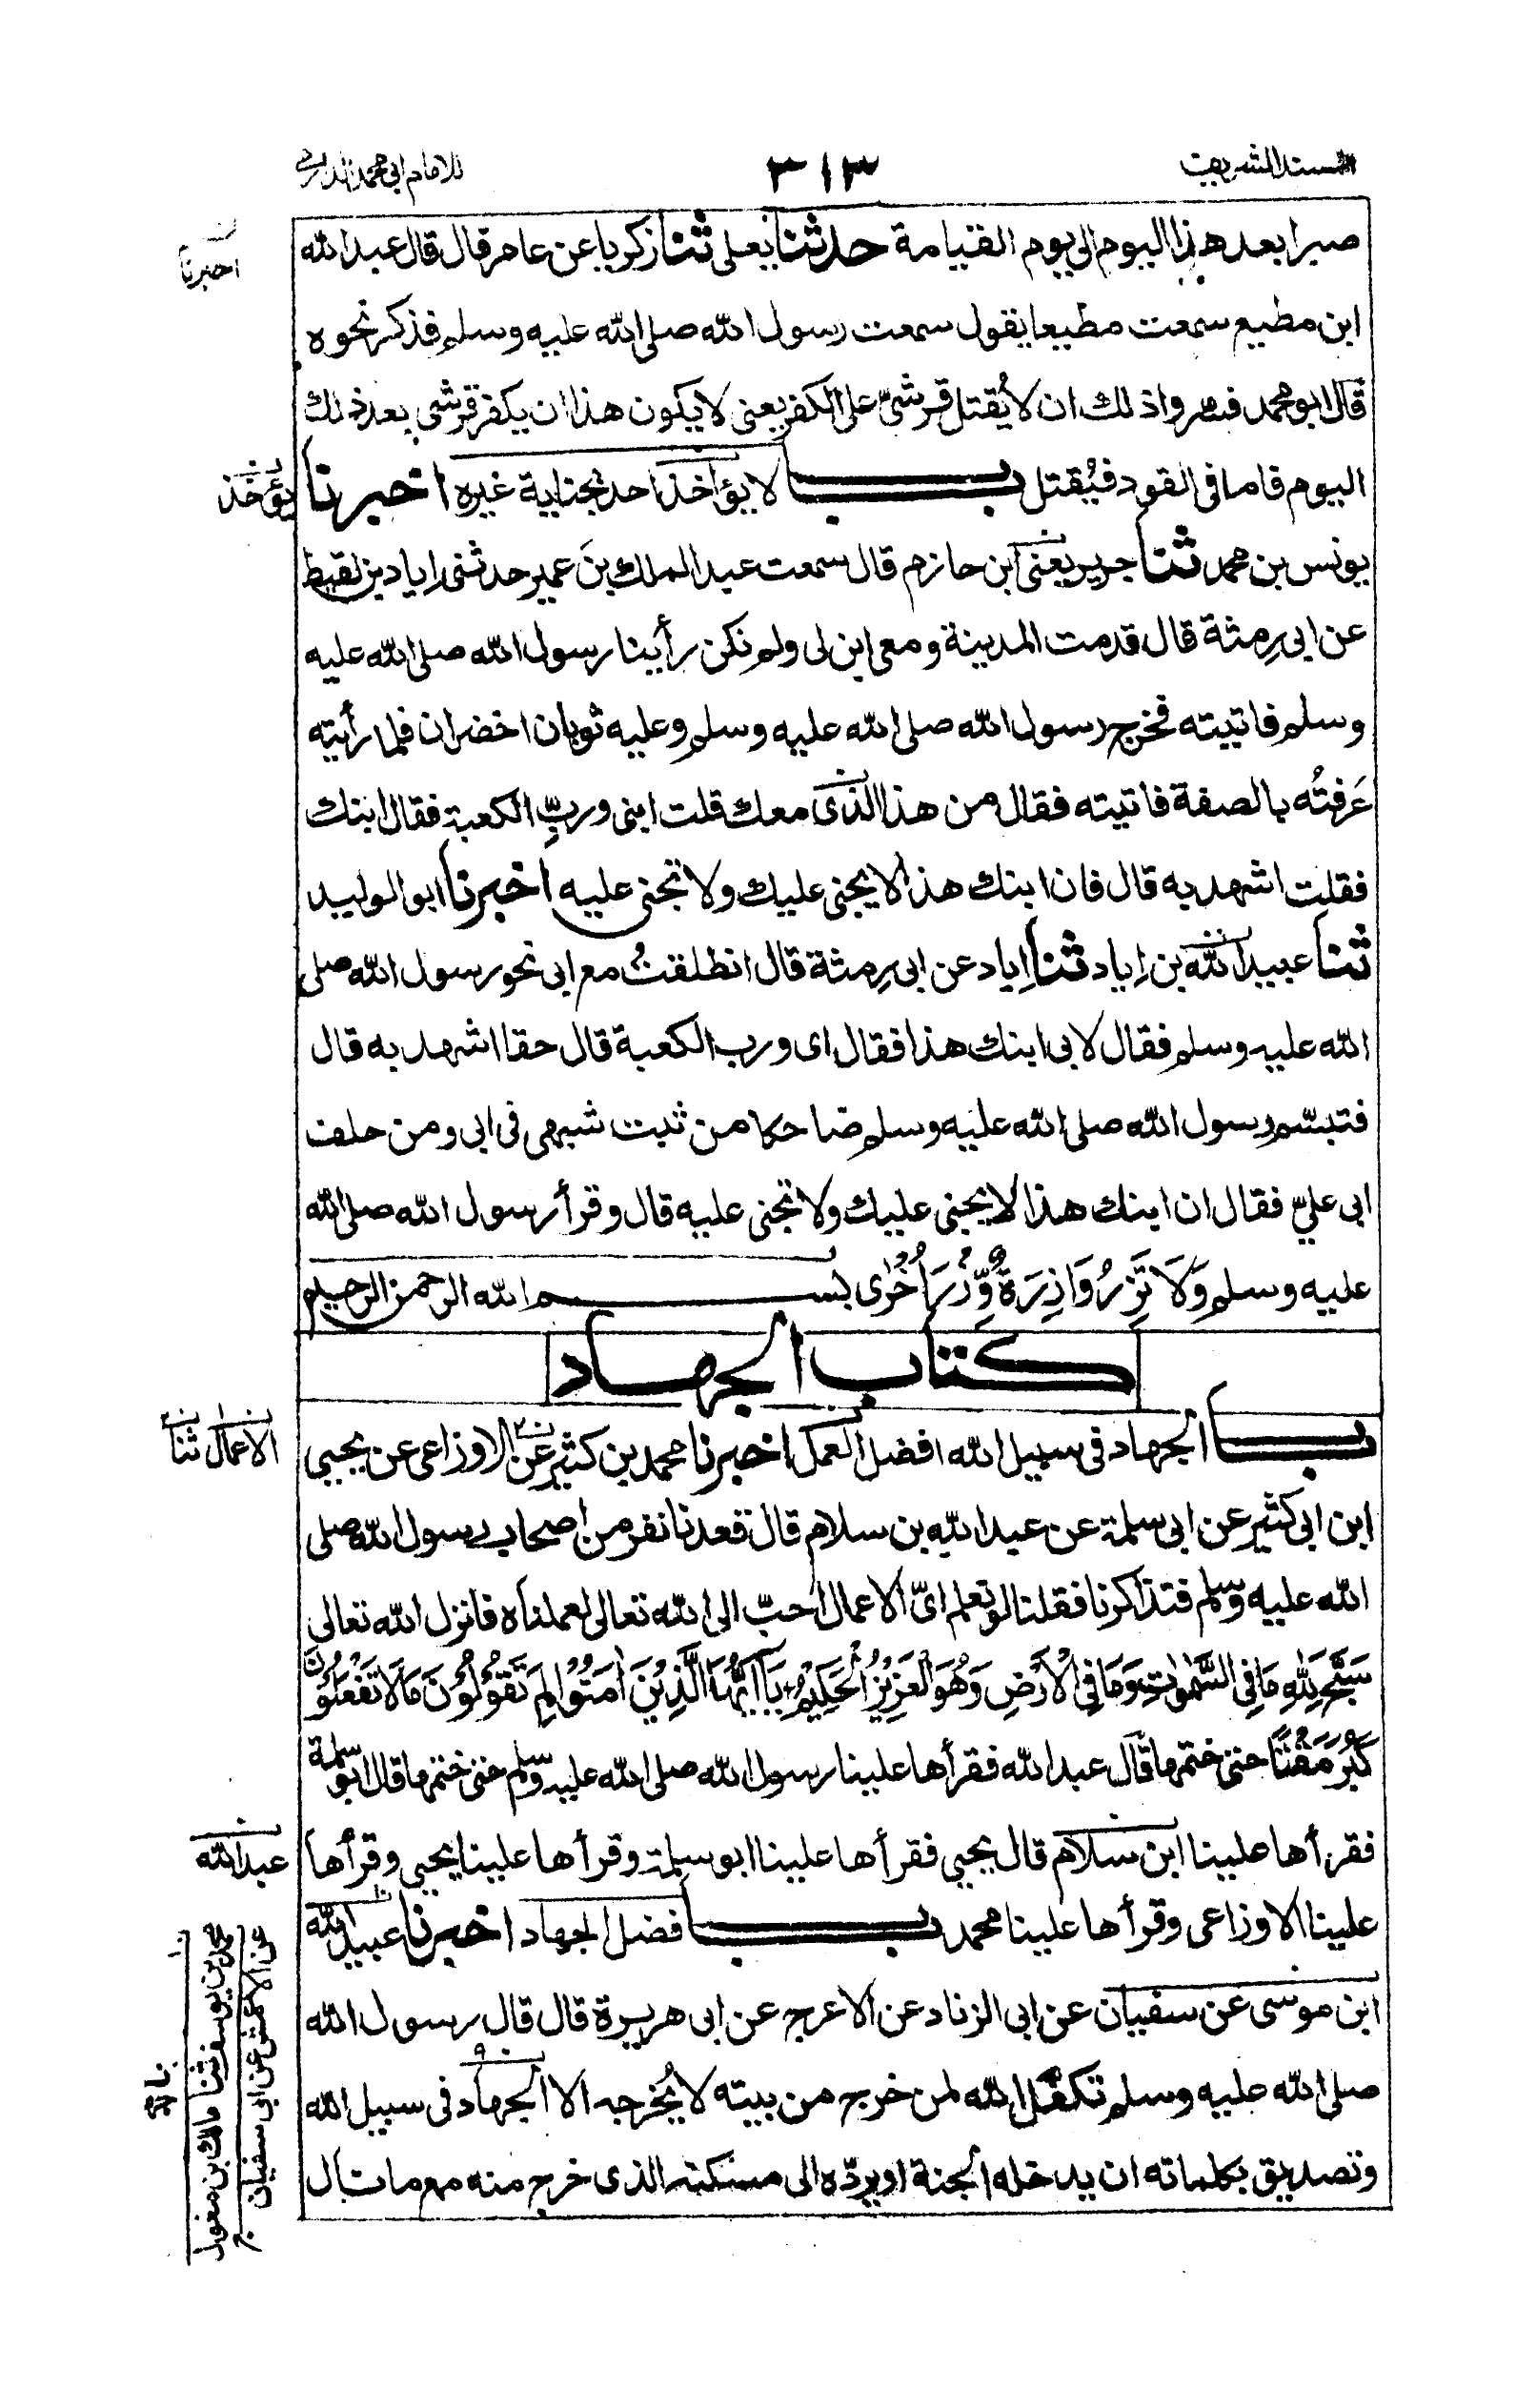 المسند الشريف
٣١٣
للامام ابى محمد الدارمى
صبرا بعد هذا اليوم الى يوم القيامة حدثنا يعلى ثنا زكريا عن عامر قال قال عبد الله
اخبرنا
ابن مطيع سمعت مطيعا يقول سمعت رسول الله صلى الله عليه وسلم فذكر نحوه
قال ابو محمد فسروا ذلك ان لا يُقتل قرشىّ على الكفر يعنى لا يكون هذا ان يكفر قرشى بعد ذلك
اليوم فاما فى القود فيُقتل بـــاب لا يؤاخذ احد بجناية غيره اخبرنا
يؤخذ
يونس بن محمد ثنا جرير يعنى ابن حازم قال سمعت عبد الملك بنَ عمير حدثنى اياد بن لقيط
عن ابى رِمثة قال قدمت المدينة ومعى ابن لى ولم نكن رأينا رسول الله صلى الله عليه
وسلم فاتيته فخرج رسول الله صلى الله عليه وسلم وعليه ثوبان اخضران فلما رأيته
عَرفتُه بالصفة فاتيته فقال من هذا الذى معك قلت ابنى وربِّ الكعبة فقال ابنك
فقلت اشهد به قال فان ابنك هذا لا يجنى عليك ولا تجنى عليه اخبرنا ابو الوليد
ثنا عبيد الله بن اِياد ثنا اِياد عن ابى رِمثة قال انطلقتُ مع ابى نحو رسول الله صلى
الله عليه وسلم فقال لابى ابنك هذا فقال اى ورب الكعبة قال حقا اشهد به قال
فتبسّم رسول الله صلى الله عليه وسلم ضاحكا من ثبت شبهى فى ابى ومن حلف
ابى علىّ فقال ان ابنك هذا لا يجنى عليك ولا تجنى عليه قال وقرأ رسول الله صلى الله
عليه وسلم وَلَا تَزِرُ وَازِرَةٌ وِّزْرَ اُخْرٰى بســـم الله الرحمن الرحيم
كتاب الجهاد
بـــاب الجهاد فى سبيل الله افضل العمل اخبرنا محمد بن كثير عن الاوزاعى عن يحيى
الاعمال ثنا
ابن ابى كثير عن ابى سلمة عن عبد الله بن سلام قال قعدنا نفر من اصحاب رسول الله صلى
الله عليه وسلم فتذاكرنا فقلنا لو نعلم اىّ الاعمال احبّ الى الله تعالى لعملناه فانزل الله تعالى
سَبَّحَ لِلّٰهِ مَا فِى السَّمٰوٰتِ وَمَا فِى الْاَرْضِ وَهُوَ الْعَزِيْزُ الْحَكِيْمُ يَا اَيُّهَا الَّذِيْنَ اٰمَنُوْا لِمَ تَقُوْلُوْنَ مَا لَا تَفْعَلُوْنَ
كَبُرَ مَقْتًا حتى ختمها قال عبد الله فقرأها علينا رسول الله صلى الله عليه وسلم حتى ختمها قال ابو سلمة
فقرأها علينا ابن سلام قال يحيى فقرأها علينا ابو سلمة وقرأها علينا يحيى وقرأها
عبد الله
علينا الاوزاعى وقرأها علينا محمد بـــاب فضل الجهاد اخبرنا عبيد الله
ابن موسى عن سفيان عن ابى الزناد عن الاعرج عن ابى هريرة قال قال رسول الله
صلى الله عليه وسلم تكفل الله لمن خرج من بيته لا يُخرجه الا الجهاد فى سبيل الله
وتصديق بكلماته ان يدخله الجنة او يردّه الى مسكنه الذى خرج منه مع ما نال
عن الاعمش عن ابى سفيان
محمد بن يوسف ثنا مالك بن مغول